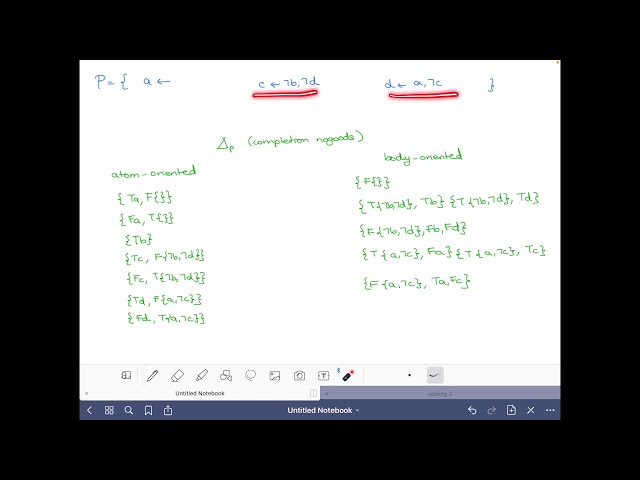 P = { a ← c ← ¬b, ¬d d ← a, ¬c }
Δp (completion nogoods)
atom-oriented
{Ta, F{}}
{Fa, T{}}
{Tb}
{Tc, F{¬b,¬d}}
{Fc, T{¬b,¬d}}
{Td, F{a,¬c}}
{Fd, T{a,¬c}}
body-oriented
{F{}}
{T{¬b,¬d}, Tb} {T{¬b,¬d}, Td}
{F{¬b,¬d}, Fb, Fd}
{T{a,¬c}, Fa} {T{a,¬c}, Tc}
{F{a,¬c}, Ta, Fc}
Untitled Notebook
solving 2
Untitled Notebook